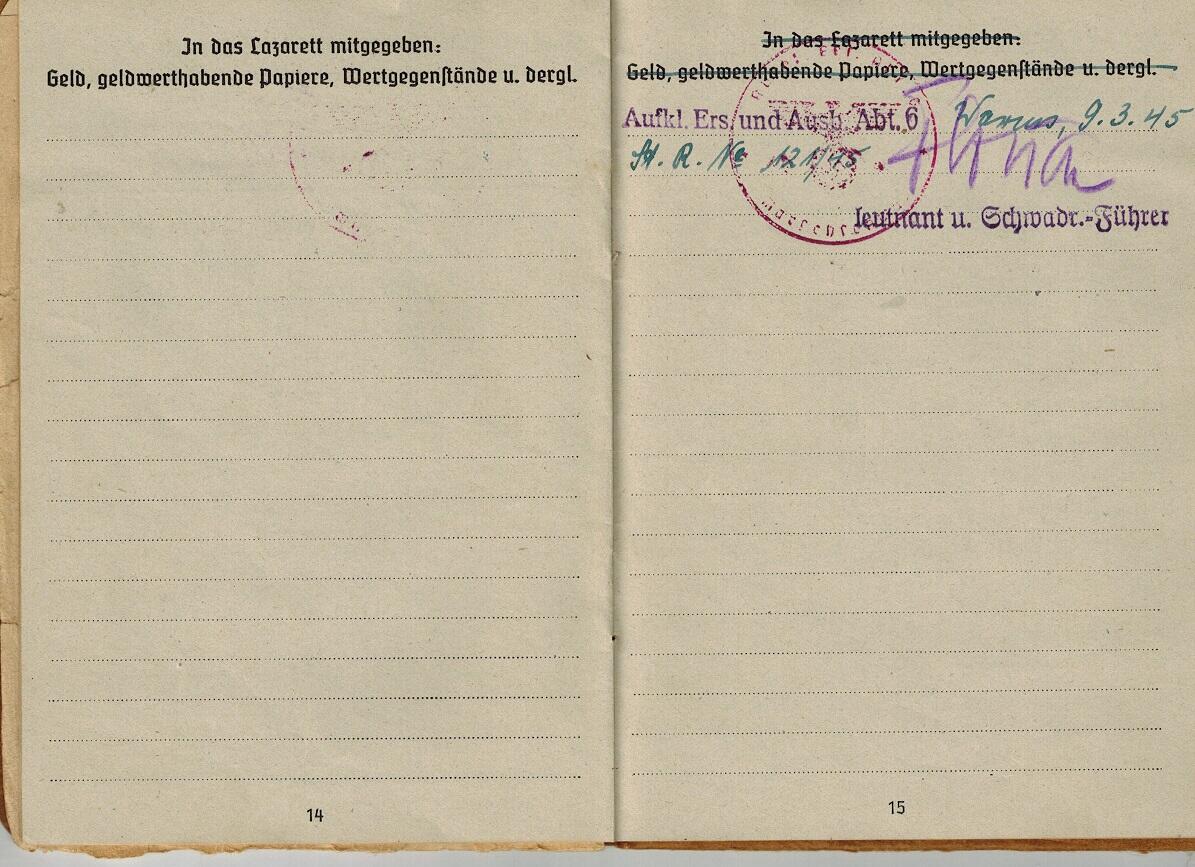 In das Lazarett mitgegeben:
Geld, geldwerthabende Papiere, Wertgegenstände u. dergl.
14
In das Lazarett mitgegeben:
Geld, geldwerthabende Papiere, Wertgegenstände u. dergl.
Aufkl. Ers. und Ausb. Abt. 6 Worms, 9.3.45
St. R. No 121/45
leutnant u. Schwadr.-Führer
15